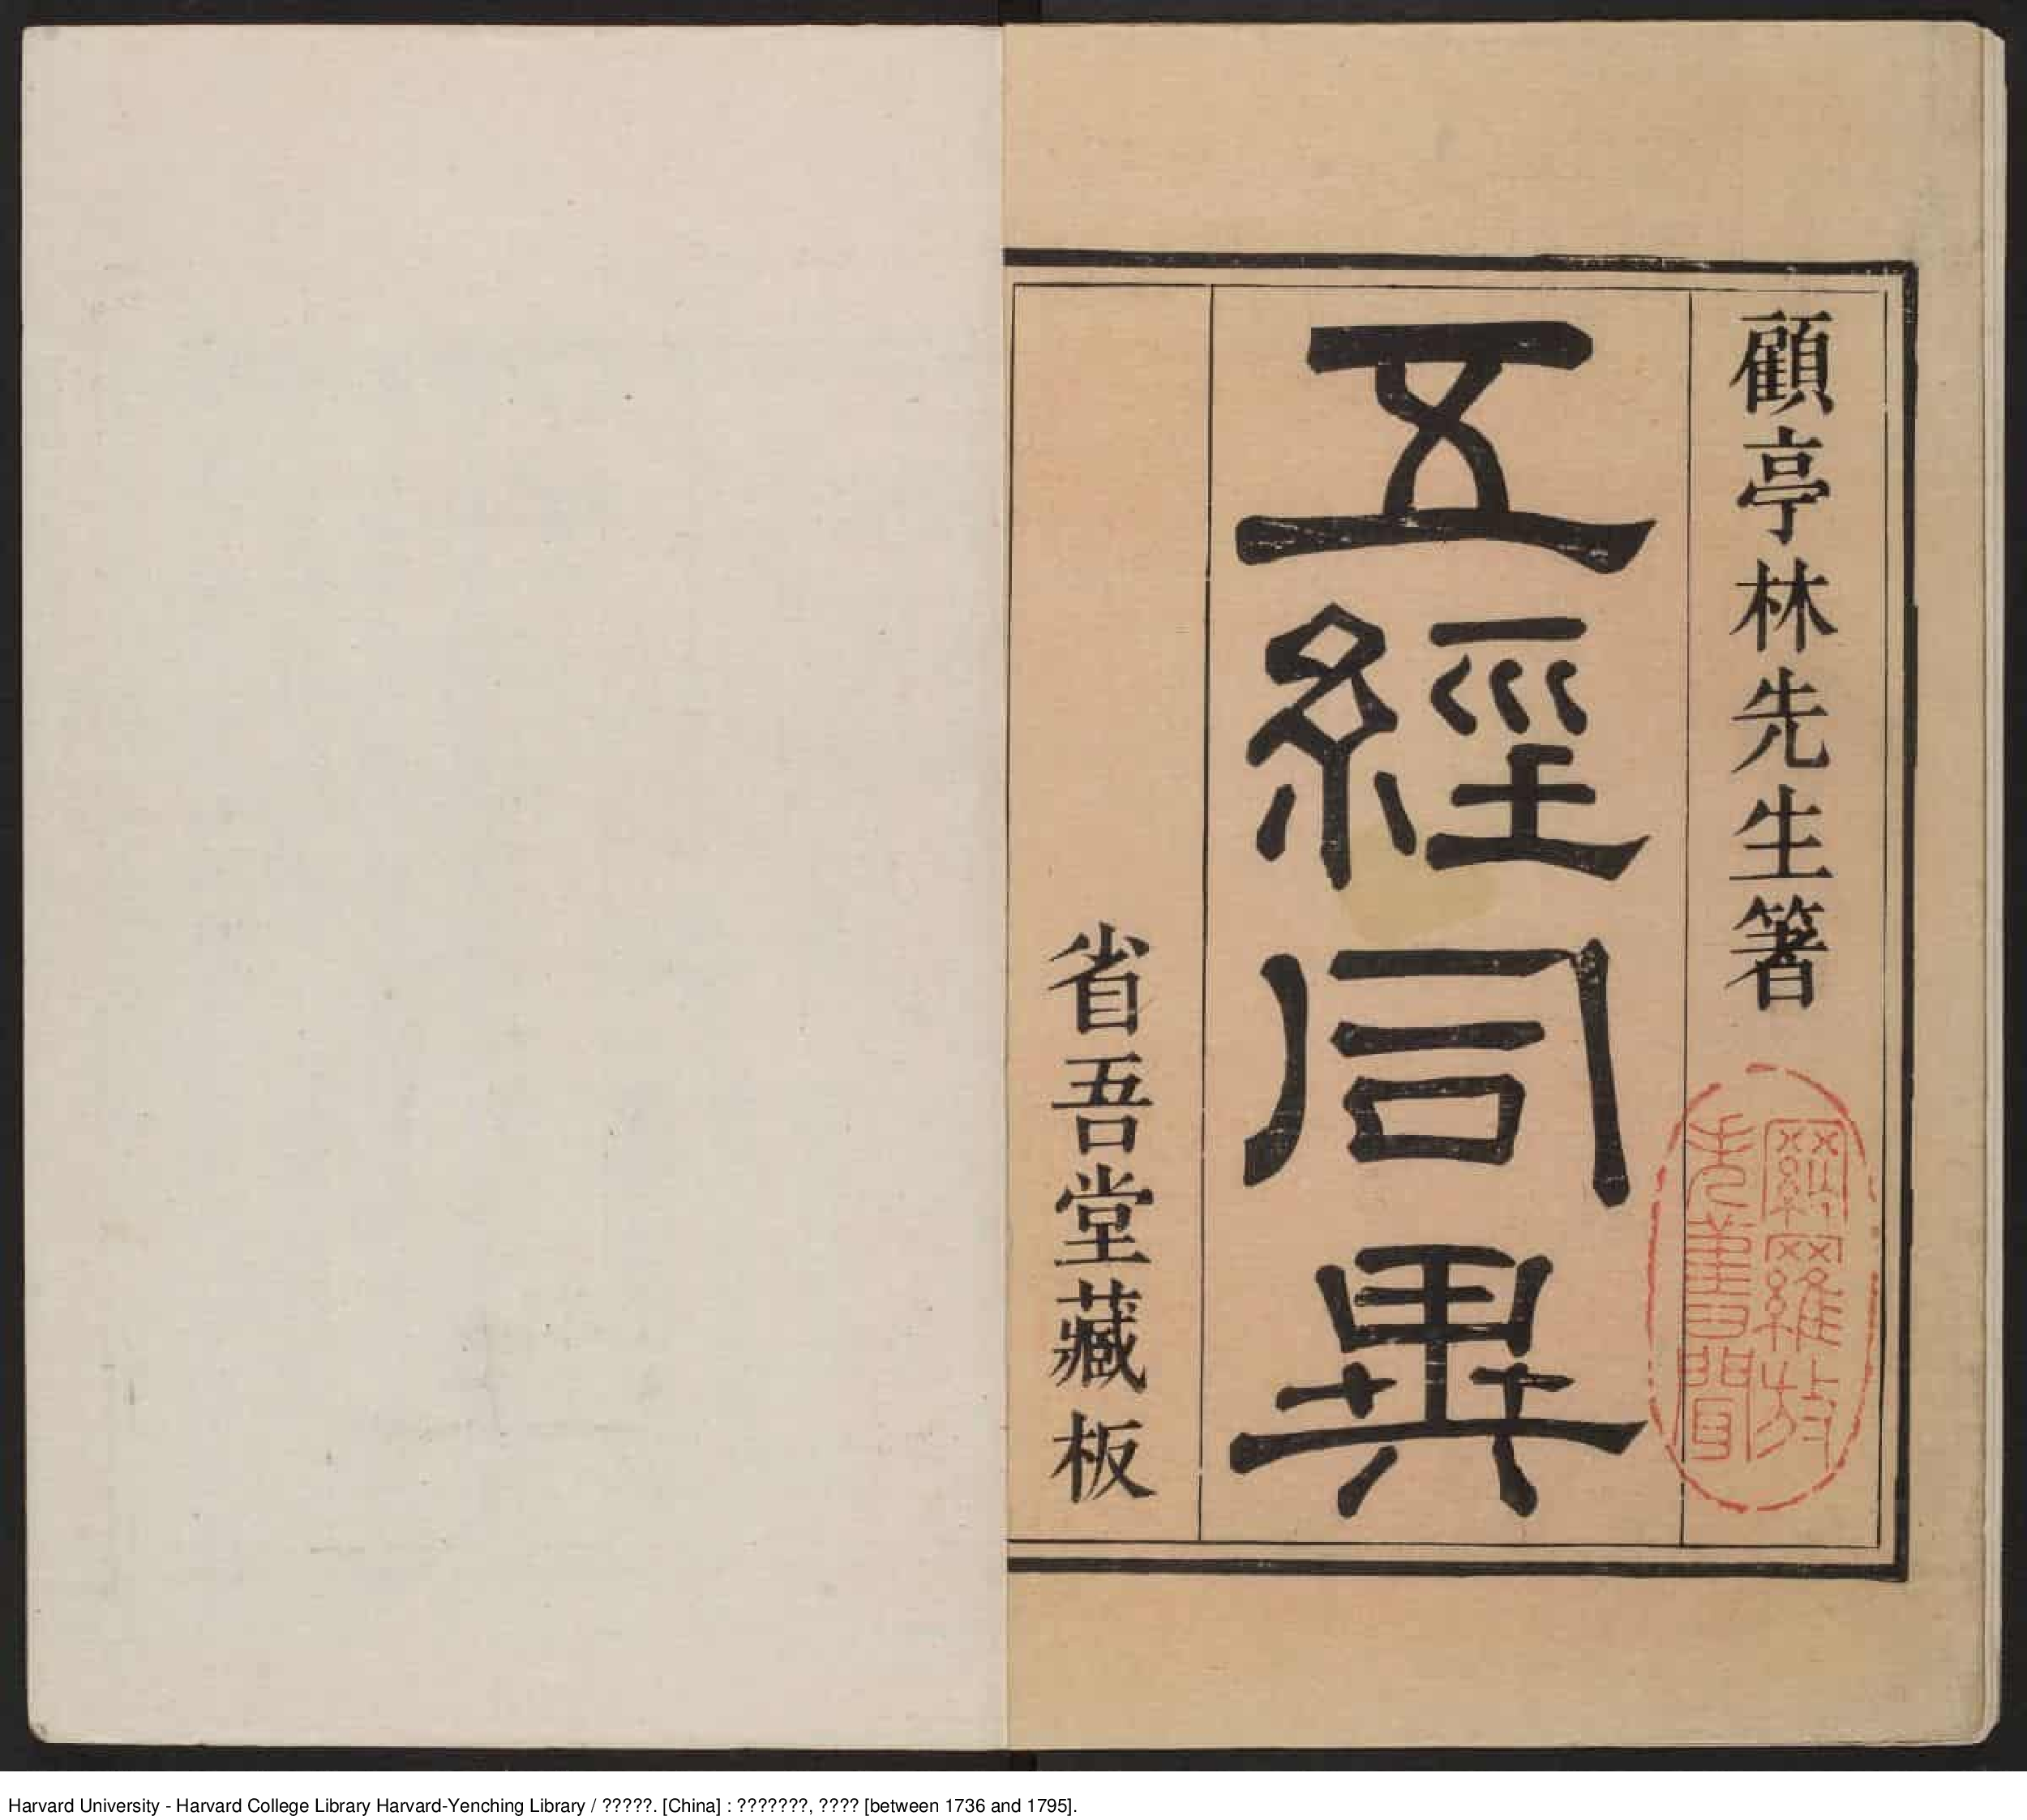 顧亭林先生著
五經同異
省吾堂藏板
Harvard University - Harvard College Library Harvard-Yenching Library / ?????. [China] : ???????, ???? [between 1736 and 1795].